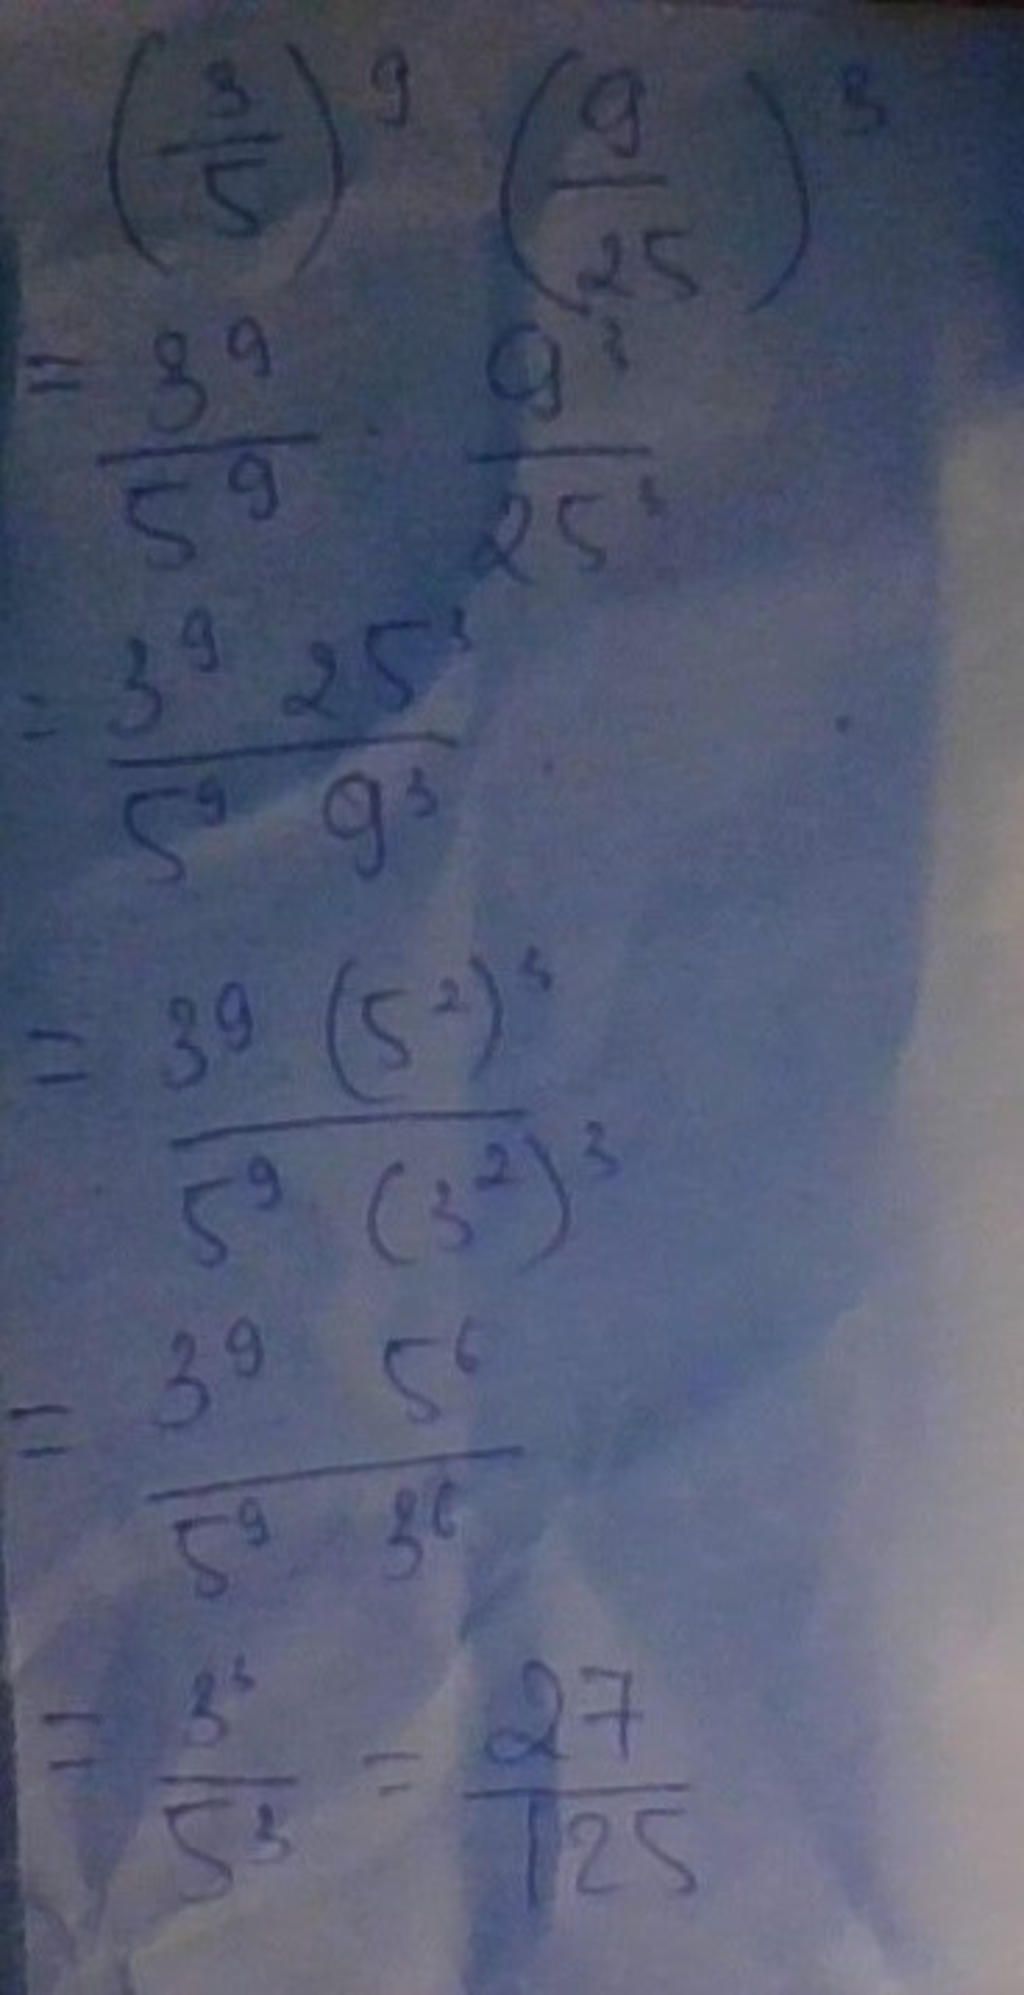 (3/5)^9 (9/25)^3
= 3^9/5^9 · 9^3/25^3
= 3^9 25^3 / 5^9 9^3
= 3^9 (5^2)^3 / 5^9 (3^2)^3
= 3^9 5^6 / 5^9 3^6
= 3^3/5^3 = 27/125